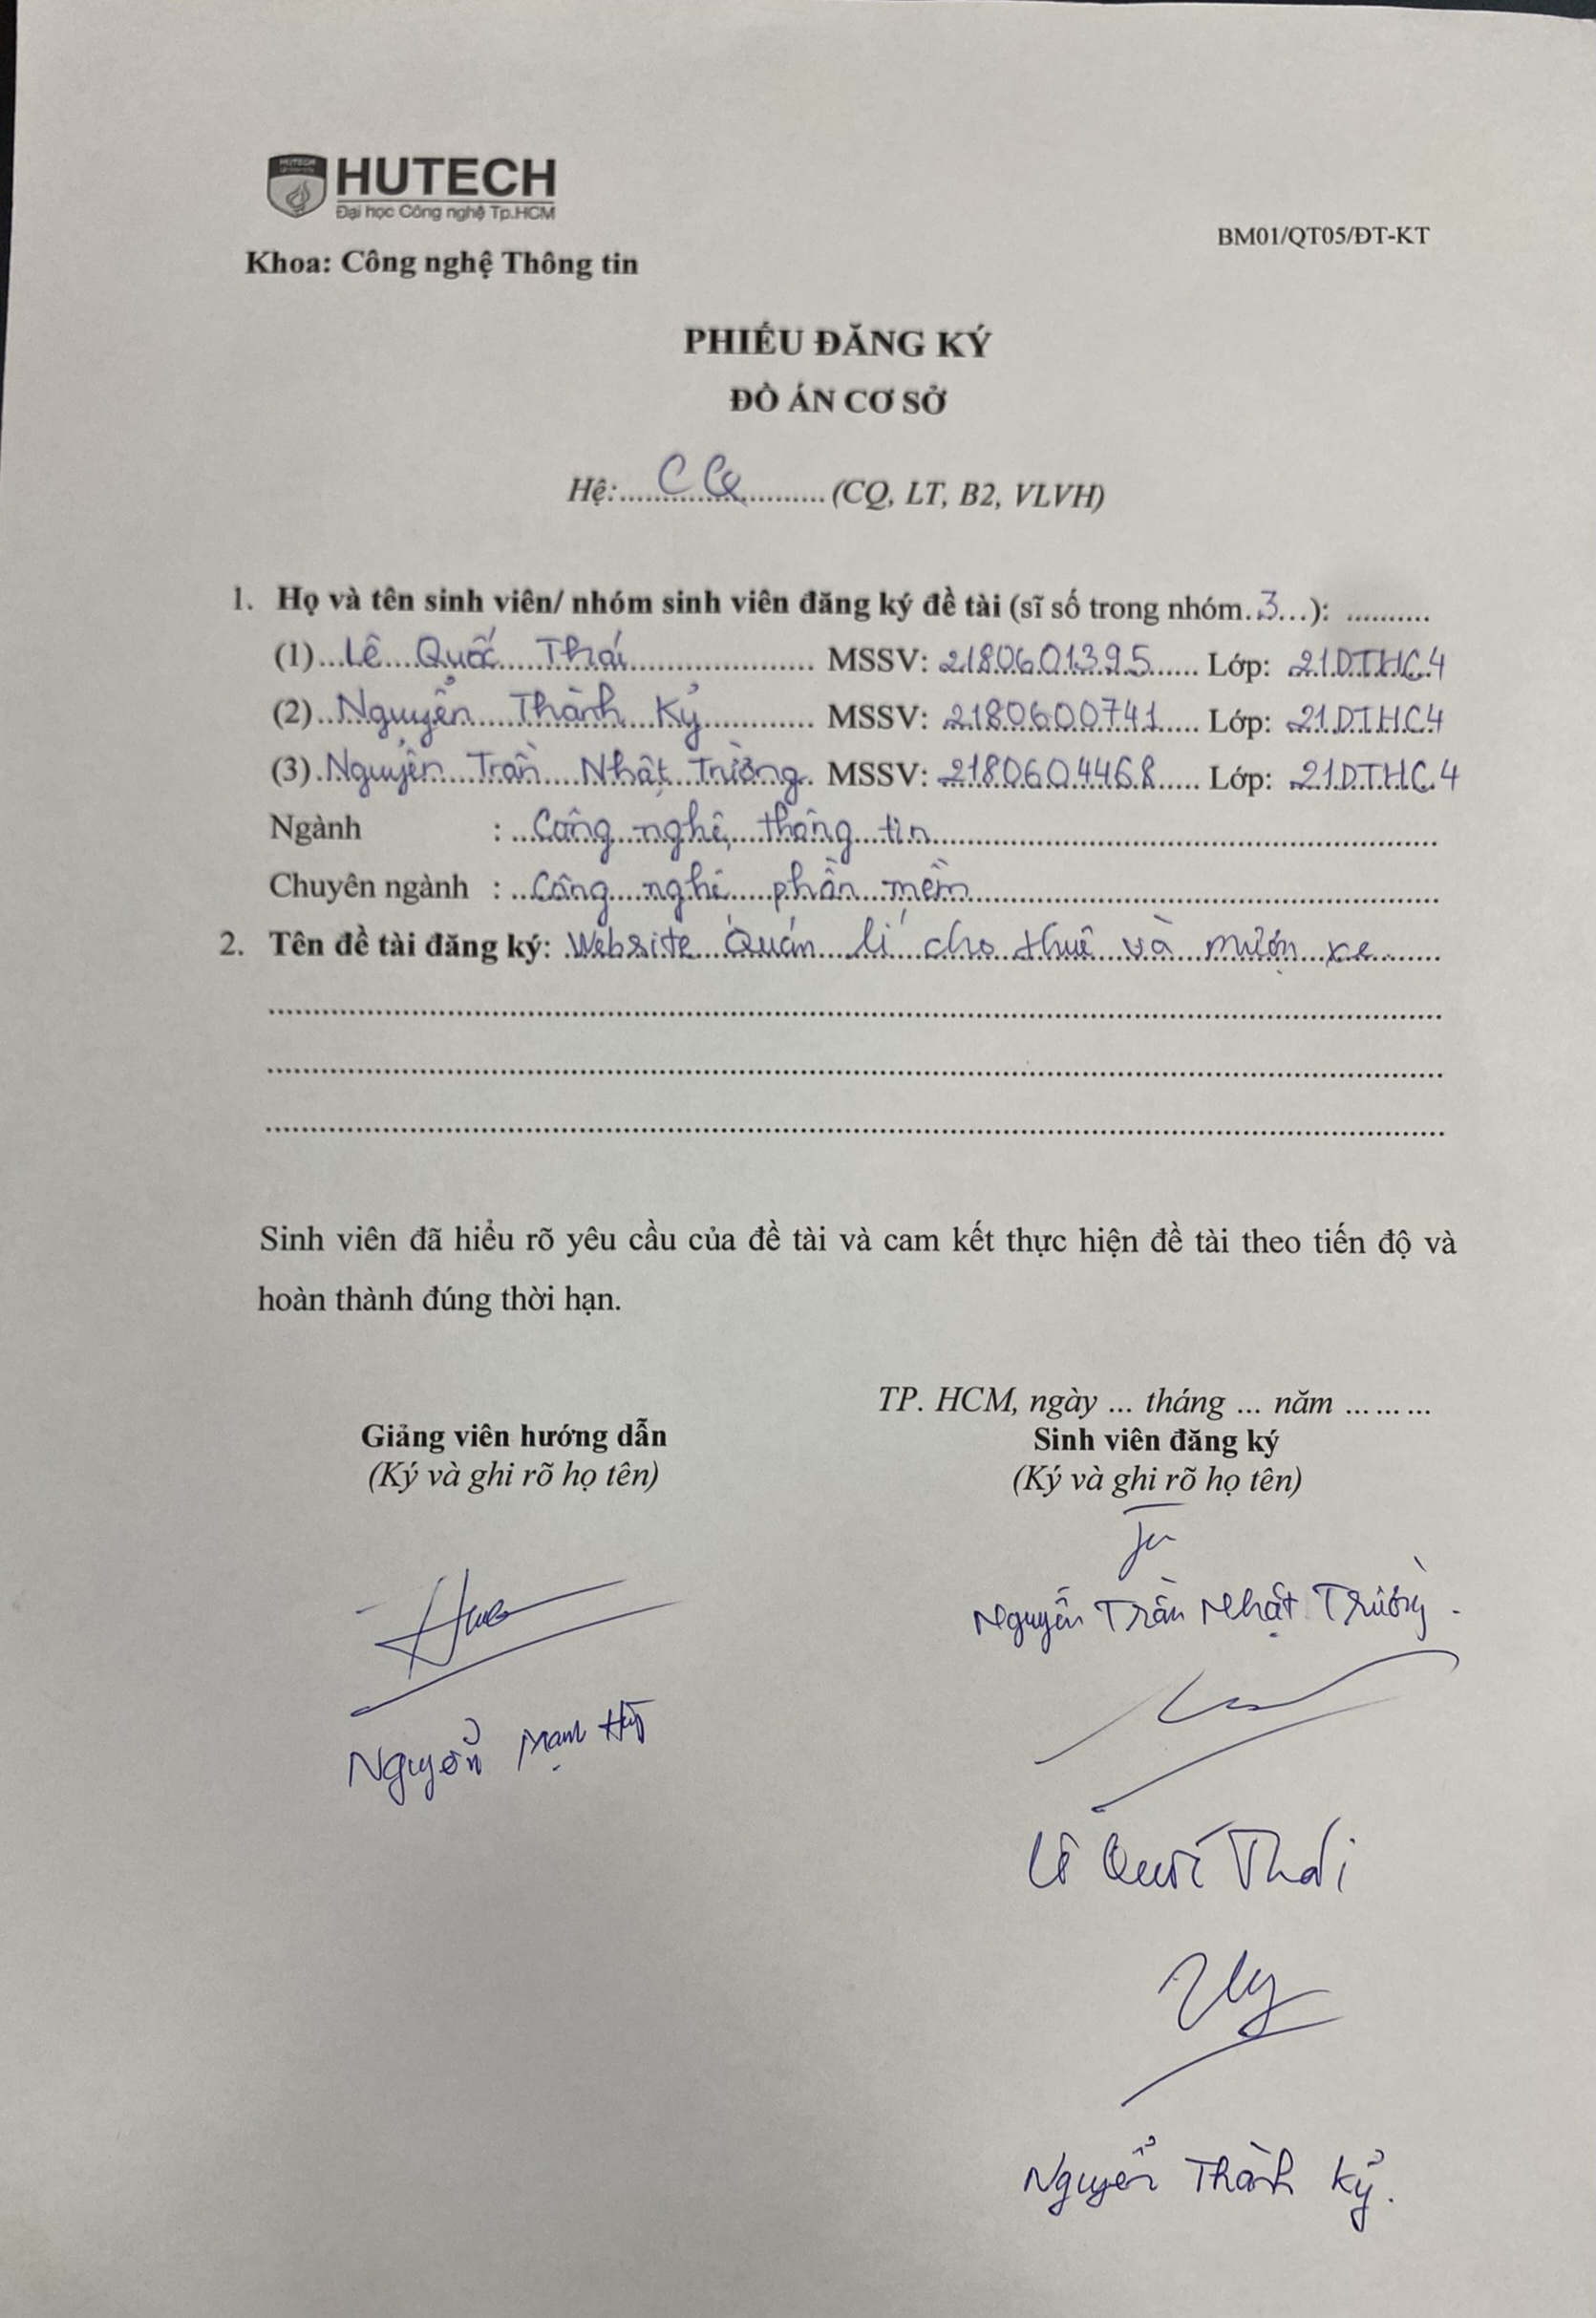 HUTECH
Đại học Công nghệ Tp.HCM
BM01/QT05/ĐT-KT
Khoa: Công nghệ Thông tin
PHIẾU ĐĂNG KÝ
ĐỒ ÁN CƠ SỞ
Hệ:....CQ....(CQ, LT, B2, VLVH)
1. Họ và tên sinh viên/ nhóm sinh viên đăng ký đề tài (sĩ số trong nhóm.3...): ..........
(1)...Lê Quốc Thái.......... MSSV: 2180601395...... Lớp: 21DTHC4
(2)..Nguyễn Thành Kỷ.......... MSSV: 2180600741..... Lớp: 21DTHC4
(3).Nguyễn Trần Nhật Trường. MSSV: 2180604468..... Lớp: 21DTHC4
Ngành : ..Công nghệ thông tin..........
Chuyên ngành : ..Công nghệ phần mềm..........
2. Tên đề tài đăng ký: Website Quán lí cho thuê và mượn xe......
Sinh viên đã hiểu rõ yêu cầu của đề tài và cam kết thực hiện đề tài theo tiến độ và
hoàn thành đúng thời hạn.
TP. HCM, ngày ... tháng ... năm ... ... ...
Giảng viên hướng dẫn Sinh viên đăng ký
(Ký và ghi rõ họ tên) (Ký và ghi rõ họ tên)
Nguyễn Trần Nhật Trường.
Nguyễn Mạnh
Lê Quốc Thái
Nguyễn Thành Kỷ.